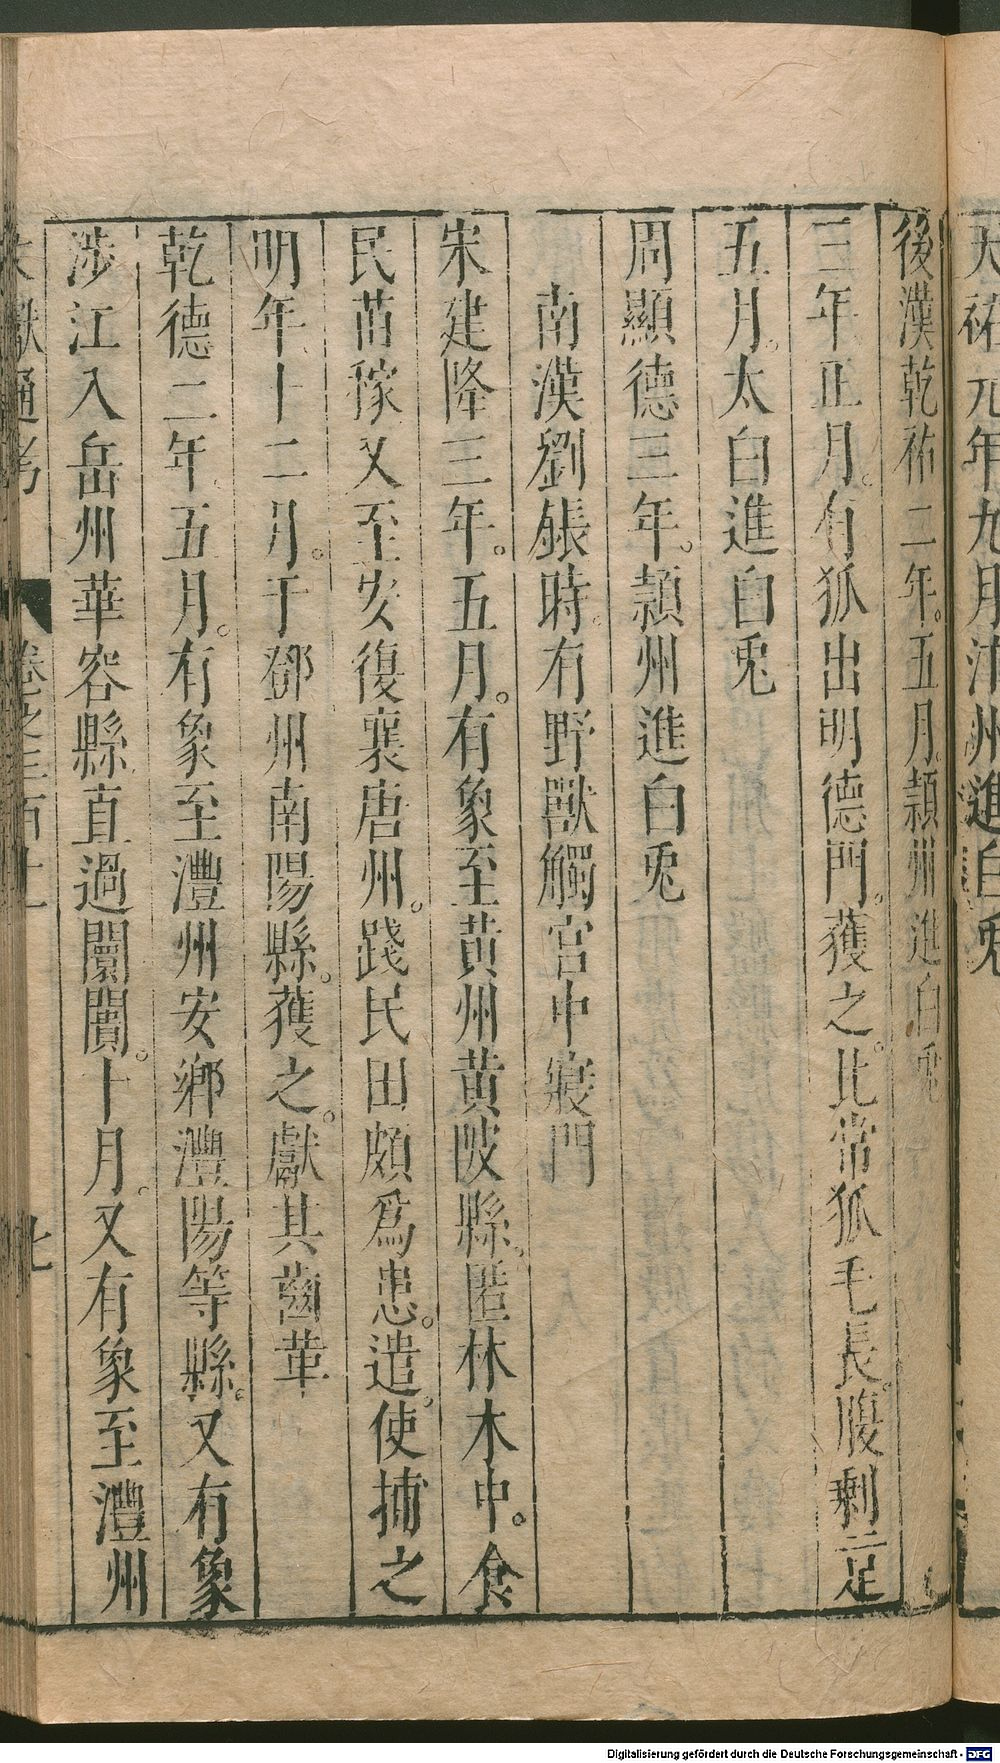 天祐元年九月沛州進白兎
後漢乾祐二年。五月。潁州進白兎
三年正月。有狐出明德門。獲之。比常狐毛長。腹剩二足
五月。太白進白兎
周顯德三年。潁州進白兎
南漢劉鋹時。有野獸觸宮中寢門
宋建隆三年。五月。有象至黃州黃陂縣。匿林木中。食
民苗稼又至安復襄唐州。踐民田頗爲患。遣。使捕之
明年十二月。于鄧州南陽縣。獲之。獻其齒革
乾德二年五月。有象至澧州安鄉澧陽等縣。又有象
涉江入岳州華容縣直過闤闠。十月。又有象至澧州
文獻通考 卷之三百十一 七
Digitalisierung gefördert durch die Deutsche Forschungsgemeinschaft - DFG